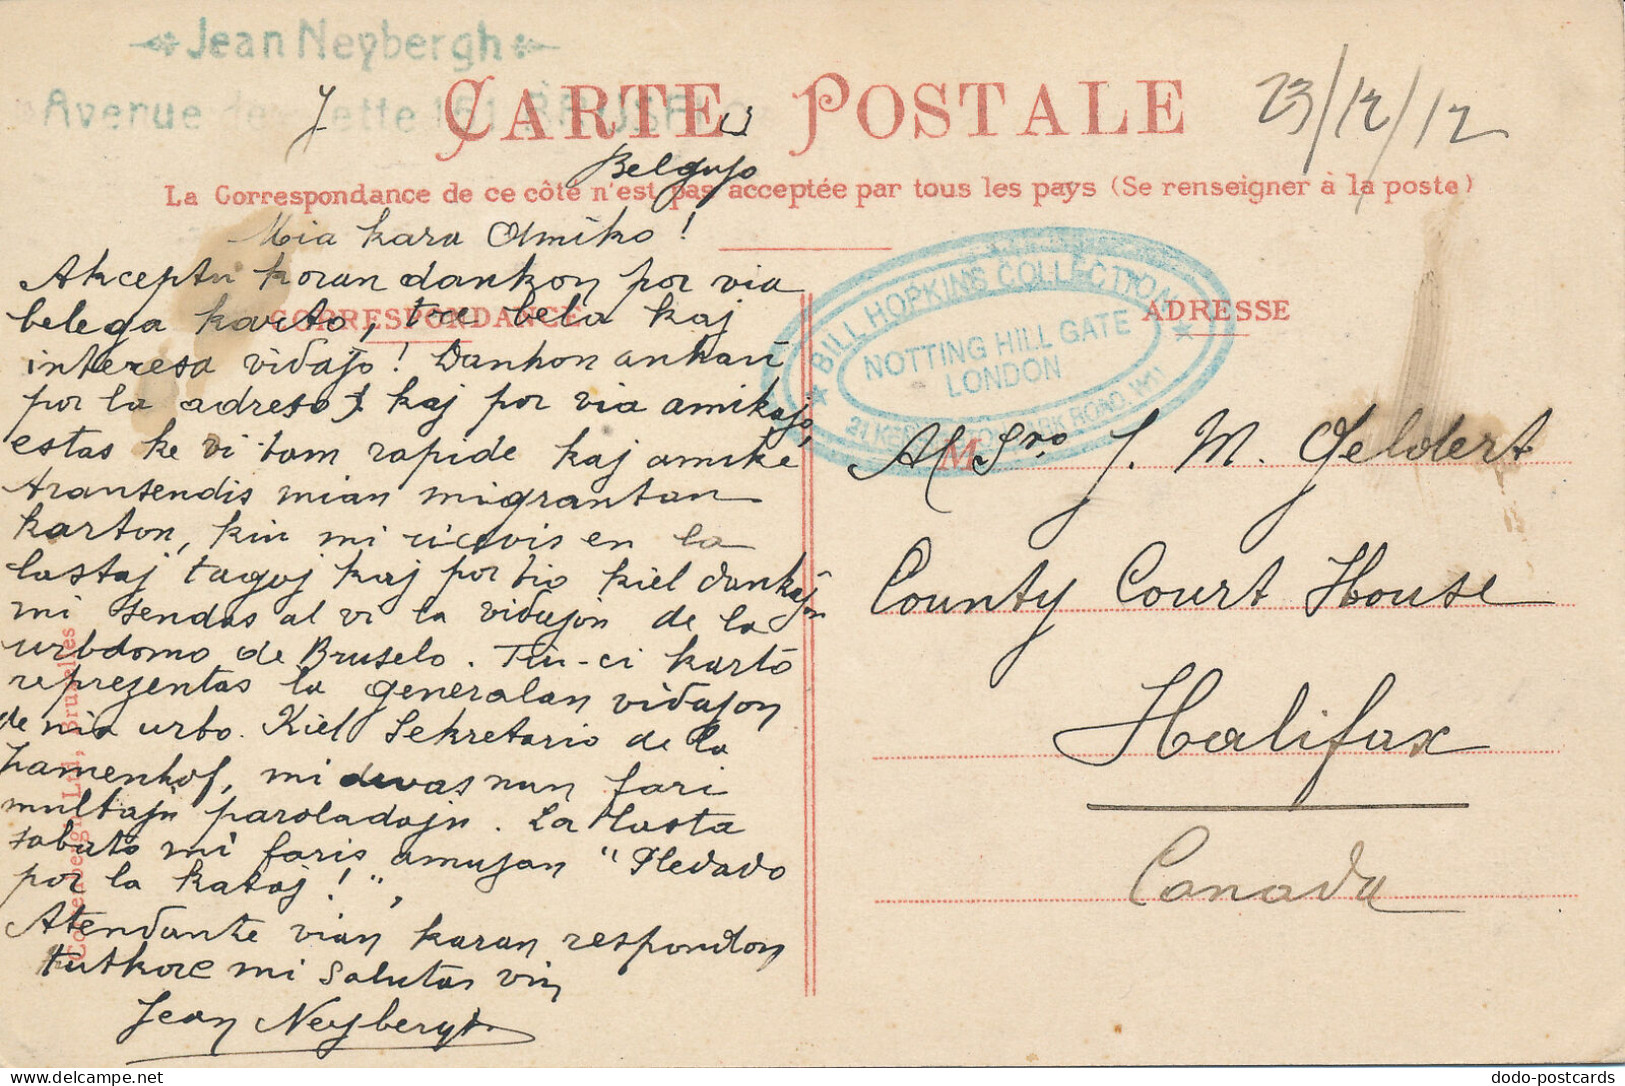 Jean Neybergh
Avenue
CARTE POSTALE
23/12/12
Belgujo
La Correspondance de ce côté n'est pas acceptée par tous les pays (Se renseigner à la poste)
Mia kara Amiko!
Akceptu koran dankon por via
belega karto, tre bela kaj
interesa vidajo! Dankon ankaŭ
por la adreso, kaj por via amikajo,
estas ke vi tam rapide kaj amike
transendis mian migrantan
karton, kiu mi ricevis en la
lastaj tagoj kaj por tio kiel dankajn
mi sendas al vi la vidajon de la
urbdomo de Bruselo. Tiu-ci karto
reprezentas la generalan vidajon
de mia urbo. Kiel Sekretario de la
Zamenhof, mi devas nun fari
multajn paroladojn. La lasta
sabato mi faris amuzan "Pledado
por la kataj!",
Atendante vian karan respondon
tutkore mi salutas vin
Jean Neybergh
CORRESPONDANCE
ADRESSE
BILL HOPKINS COLLECTION
NOTTING HILL GATE
LONDON
M
Al Sro J. M. Geldert
County Court House
Halifax
Canada
Bruxelles
dodo-postcards